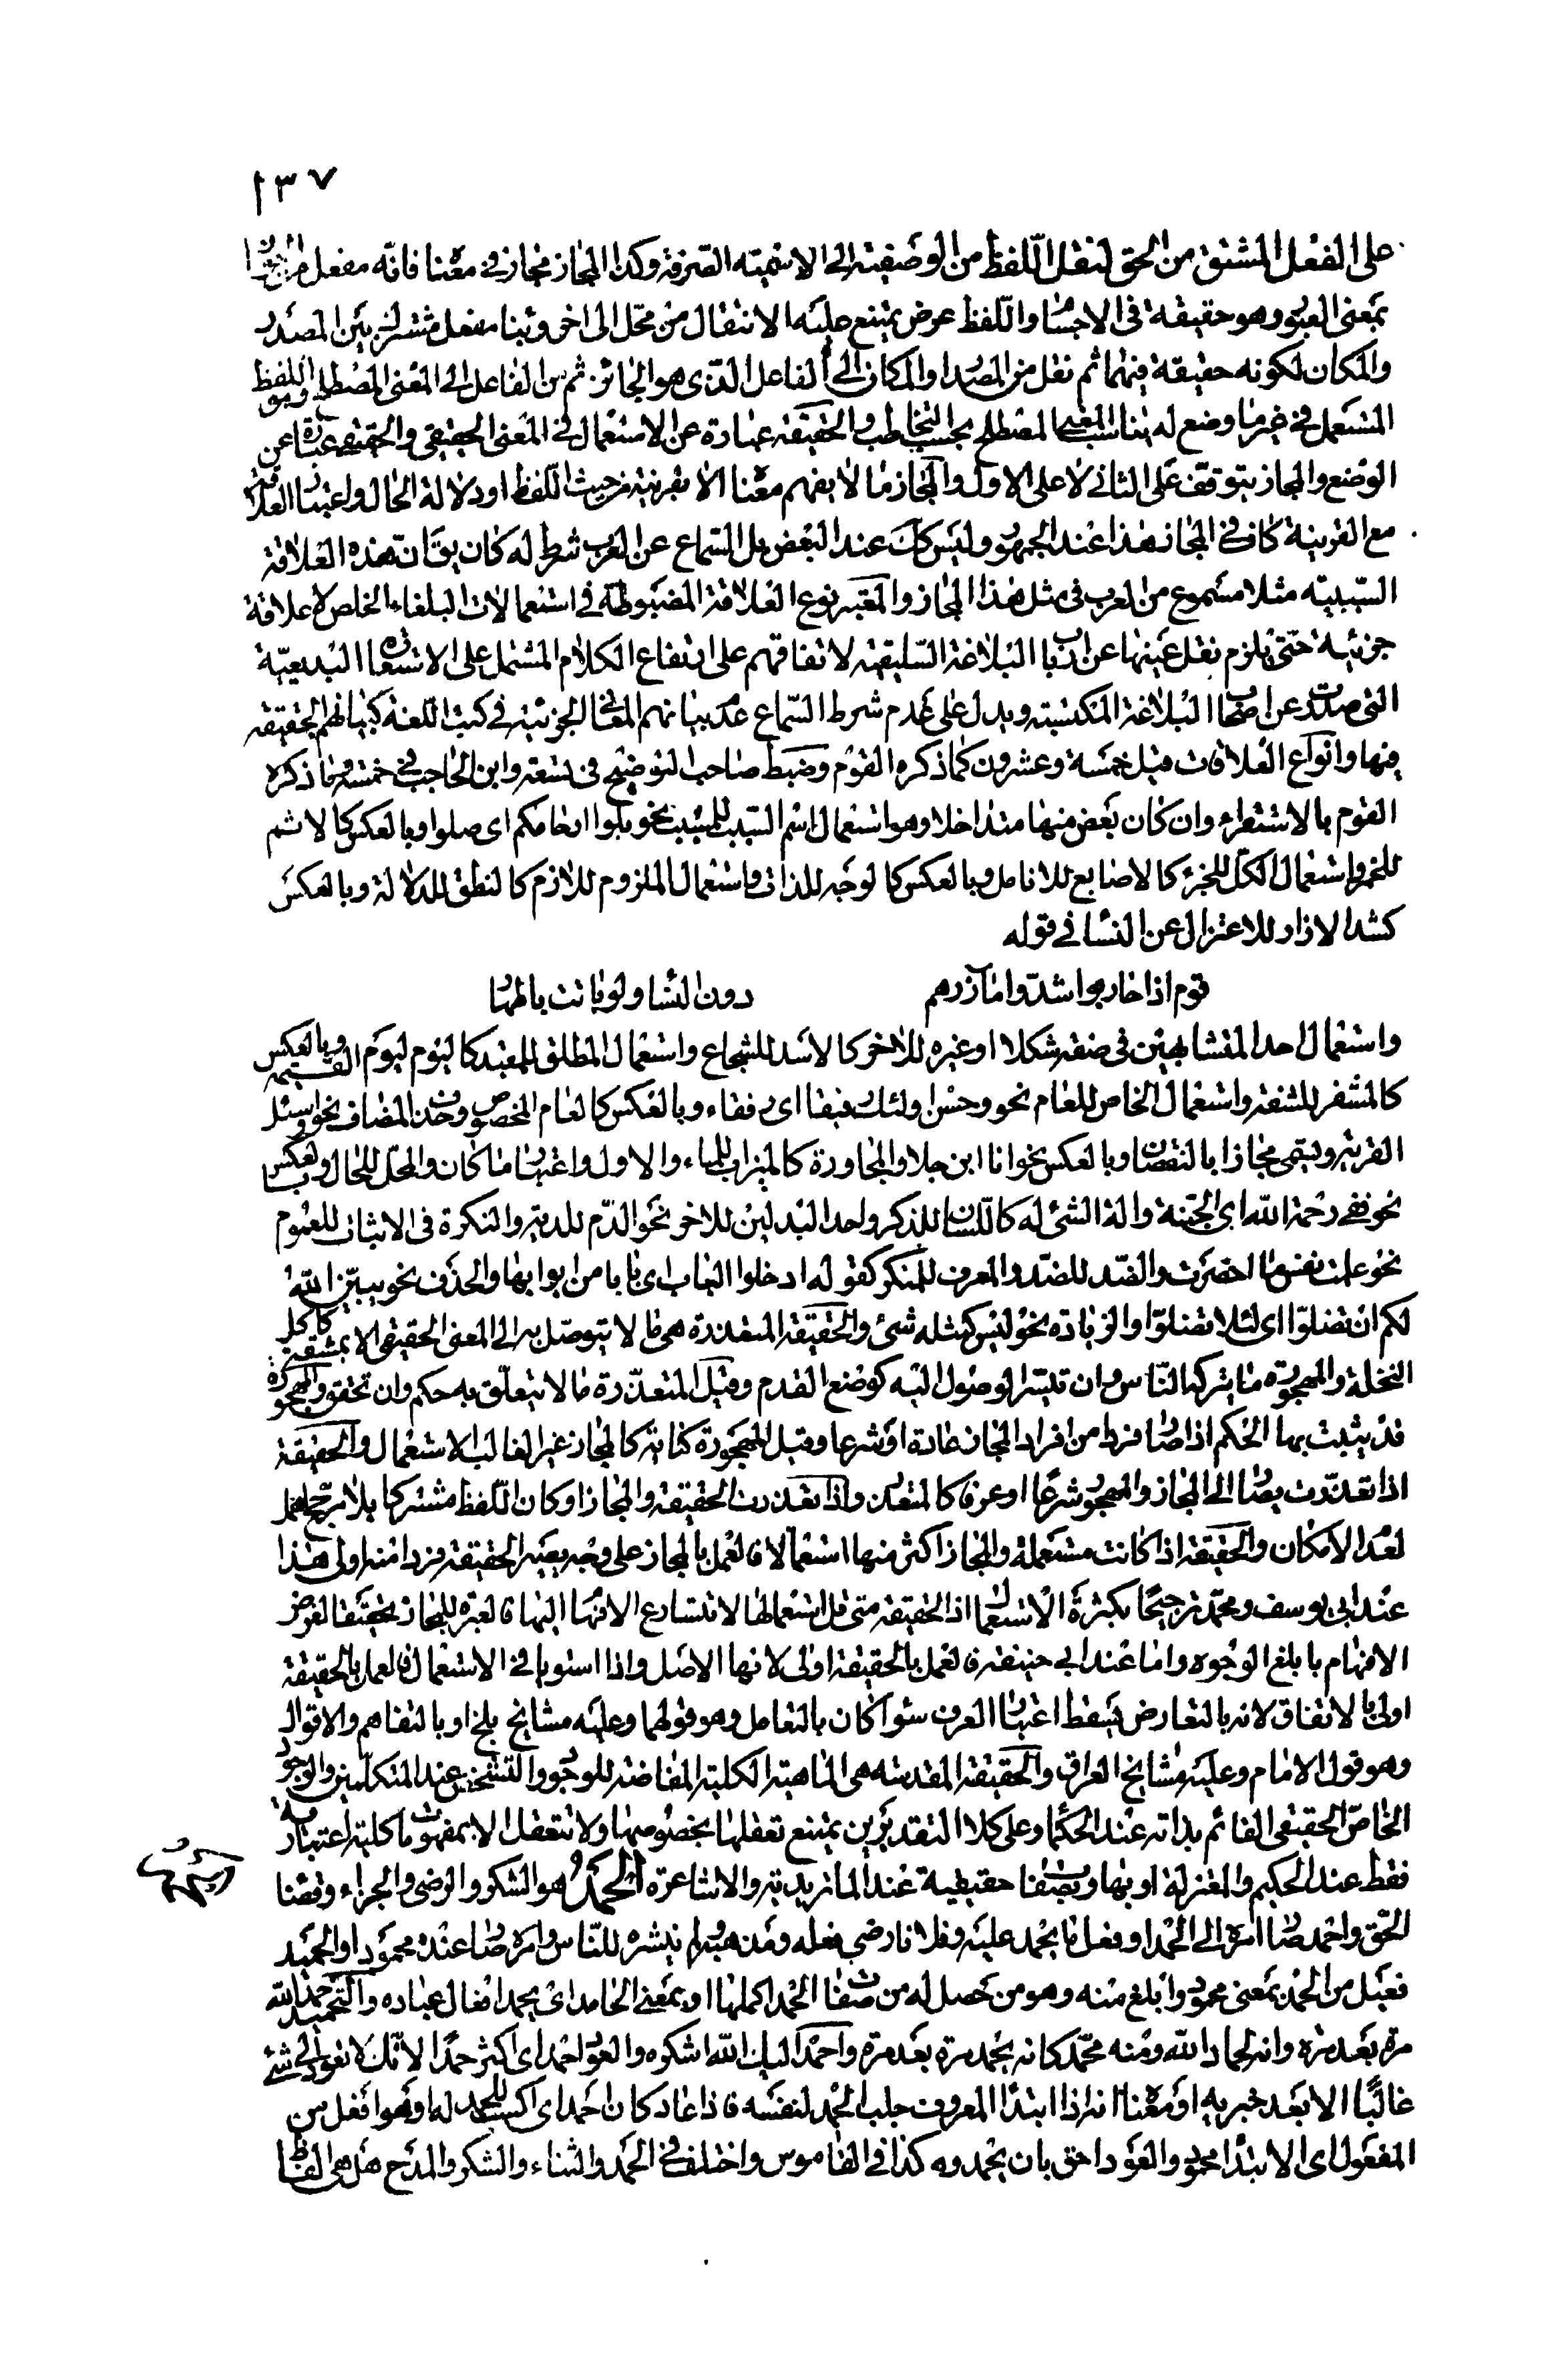 ١٣٧
على الفعل المشتق من الحق لنقل اللفظ من الوصفية الى الاسمية الصرفة وكذا المجاز مجاز في معناه فانه مفعل من
بمعنى العبور وهو حقيقة في الاجسام واللفظ عرض يمتنع عليه الانتقال من محل الى اخر وبناء مفعل مشترك بين المصدر
والمكان لكونه حقيقة فيهما ثم نقل من المصدر او المكان الى الفاعل الذى هو الجائز ثم من الفاعل الى المعنى المصطلح وهو اللفظ
المستعمل في غير ما وضع له يناسب المعنى المصطلح بحسب التخاطب والحقيقة عبارة عن الاستعمال في المعنى الحقيقى والحقيقة عبارة عن
الوضع والمجاز يتوقف على الثانى لا على الاول والمجاز ما لا يفهم معناه الا بقرينة من حيث اللفظ او دلالة الحال واعتبار العلاقة
مع القرينة كاف في المجاز هذا عند الجمهور وليس كك عند البعض بل السماع عن العرب شرط له كان يق ان هذه العلاقة
السببية مثلا مسموع من العرب في مثل هذا المجاز والمعتبر نوع العلاقة المضبوطة في استعمالات البلغاء الخلص لا علاقة
جزئية حتى يلزم نقل عينها عن ارباب البلاغة السليقية لاتفاقهم على ارتفاع الكلام المشتمل على الاستعارة البديعية
التى صدرت عن اصحاب البلاغة المكتسبة ويدل على عدم شرط السماع عدم بيانهم المعانى الجزئية في كتب اللغة كبيانهم الحقيقة
فيها وانواع العلاقات قيل خمسة وعشرون كما ذكره القوم وضبط صاحب التوضيح في تسعة وابن الحاجب في خمسة وما ذكره
القوم بالاستقراء وان كان بعض منها متداخلا وهو استعمال اسم السبب للمسبب نحو بلوا ارحامكم اى صلوا وبالعكس كالاثم
للخمر واستعمال الكل للجزء كالاصابع للانامل وبالعكس كالوجه للذات واستعمال الملزوم للازم كالنطق للدلالة وبالعكس
كشد الازار للاعتزال عن النساء في قوله
قوم اذا حاربوا شدوا مآزرهم دون النساء ولو باتت باطهار
واستعمال احد المتشابهين في صفة شكلا او غيره للاخر كالاسد للشجاع واستعمال المطلق للمقيد كاليوم ليوم القيمة وبالعكس
كالمشفر للشفة واستعمال الخاص للعام نحو وحسن اولئك رفيقا اى رفقاء وبالعكس كالعام المخصوص وحذف المضاف نحو واسئل
القرية ويسمى مجازا بالنقصان وبالعكس نحو انا ابن جلا والمجاورة كالميزاب للماء والاول واعتبار ما كان والمحل للحال وبالعكس
نحو ففى رحمة الله اى الجنة وآلة الشئ له كاللسان للذكر واحد البدلين للاخر نحو الدم للدية والنكرة في الاثبات للعموم
نحو علمت نفس ما احضرت والضد للضد والمعرف للمنكر كقوله ادخلوا الباب اى بابا من ابوابها والحذف نحو يبين الله
لكم ان تضلوا اى لئلا تضلوا والزيادة نحو ليس كمثله شئ والحقيقة المتعذرة هى ما لا يتوصل به الى المعنى الحقيقى الا بمشقة كاكل
النخلة والمهجورة ما يتركه الناس وان تيسر الوصول اليه كوضع القدم وقيل المتعذرة ما لا يتعلق به حكم وان تحقق والمهجورة
قد يثبت بها الحكم اذا صار فردا من افراد المجاز عادة او شرعا وقيل المهجورة كناية كالمجاز غير الغالب الاستعمال والحقيقة
اذا تعذرت يصار الى المجاز والمهجور شرعا او عرفا كالمتعذر واذا تعذرت الحقيقة والمجاز او كان اللفظ مشتركا بلا مرجح اهمل
لعدم الامكان والحقيقة اذا كانت مستعملة والمجاز اكثر منها استعمالا فالعمل بالمجاز على وجه يصير الحقيقة فردا منه اولى هذا
عند ابى يوسف ومحمد ترجيحا بكثرة الاستعمال اذ الحقيقة متى قل استعمالها لا تتسارع الافهام اليها فالعبرة للمجاز تحقيقا لغرض
الافهام بابلغ الوجوه واما عند ابى حنيفة فالعمل بالحقيقة اولى لانها الاصل واذا استويا في الاستعمال فالعمل بالحقيقة
اولى بالاتفاق لانه بالتعارض يسقط اعتبار العرف سواء كان بالتعامل وهو قولهما وعليه مشايخ بلخ او بالتفاهم والاقوال
وهو قول الامام وعليه مشايخ العراق والحقيقة المقدسة هى الماهية الكلية المفاضة للوجود والتشخص عند المتكلمين والوجود
الخاص الحقيقى القائم بذاته عند الحكماء وعلى كلا التقديرين يمتنع تعقلها بخصوصها ولا تتعقل الا بمفهومات كلية اعتبارية
فقط عند الحكيم والمعتزلة او بها وبصفات حقيقية عند الماتريدية والاشاعرة الحمد هو الشكر والرضى والجزاء وقضاء
الحق واحمد صار امره الى الحمد او فعل ما يحمد عليه وفلانا رضى فعله ومذهبه ولم ينشره للناس وامره صار عنده محمودا والحميد
فعيل من الحمد بمعنى محمود وابلغ منه وهو من حصل له من صفات الحمد اكملها او بمعنى الحامد اى يحمد افعال عباده والتحميد حمد الله
مرة بعد مرة وانه لحماد لله ومنه محمد كانه يحمد مرة بعد مرة واحمد اليك الله اشكره والعود احمد اى اكثر حمدا لانك لا تعود الى شئ
غالبا الا بعد خبرته او معناه انه اذا ابتدا المعروف جلب الحمد لنفسه فاذا عاد كان احمد اى اكسب للحمد له او هو افعل من
المفعول اى الابتداء محمود والعود احق بان يحمدوه كذا في القاموس واختلف في الحمد والثناء والشكر والمدح هل هى الفاظ